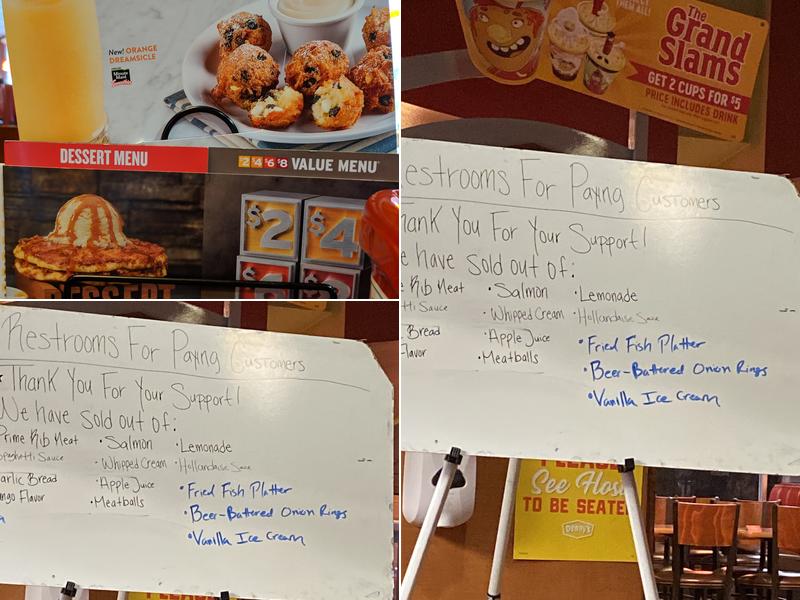 New! ORANGE
DREAMSICLE
Minute
Maid
DESSERT MENU
2 4 6 8 VALUE MENU
$2 $4
DESSERT
The
Grand
Slams
GET 2 CUPS FOR $5
PRICE INCLUDES DRINK
estrooms For Paying Customers
hank You For Your Support!
e have sold out of:
Rib Meat • Salmon • Lemonade
tti Sauce • Whipped Cream • Hollandaise Sauce
Bread • Apple Juice • Fried Fish Platter
Flavor • Meatballs • Beer-Battered Onion Rings
• Vanilla Ice Cream
See Host
TO BE SEATED
Denny's
Restrooms For Paying Customers
* Thank You For Your Support!
We have sold out of:
Prime Rib Meat • Salmon • Lemonade
Spaghetti Sauce • Whipped Cream • Hollandaise Sauce
arlic Bread • Apple Juice • Fried Fish Platter
ngo Flavor • Meatballs • Beer-Battered Onion Rings
• Vanilla Ice Cream